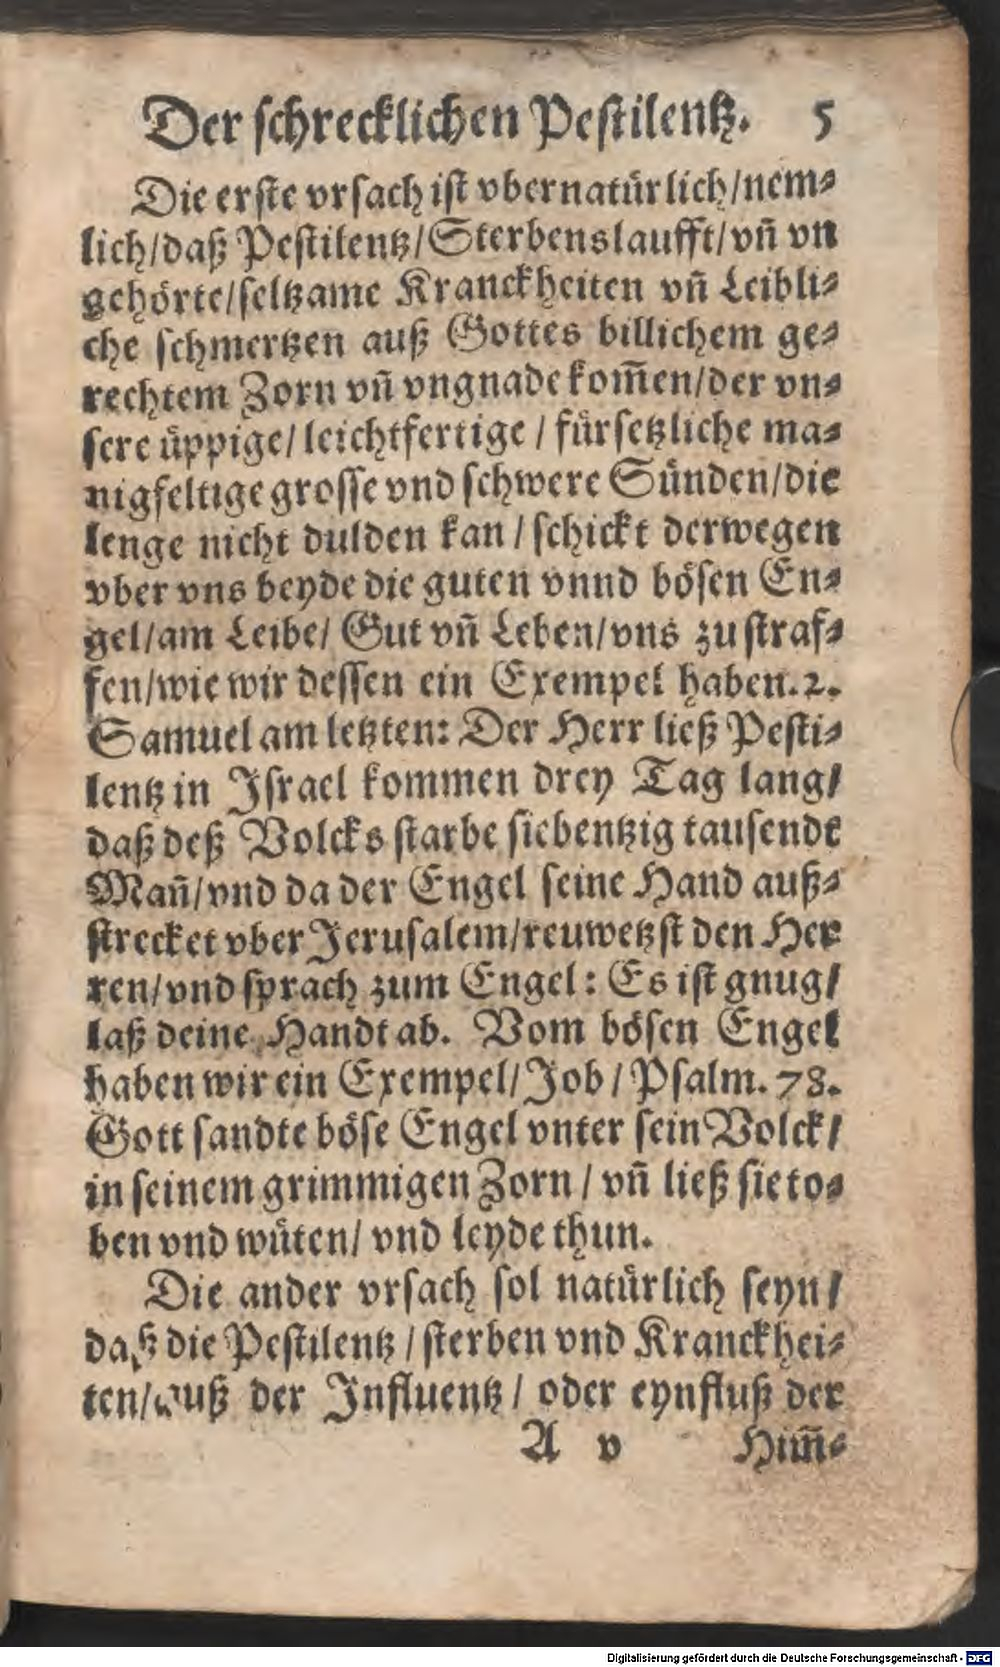 Der schrecklichen Pestilentz. 5
Die erste vrsach ist vbernatürlich/nem-
lich/daß Pestilentz/Sterbenslaufft/vñ vn
gehörte/seltzame Kranckheiten vñ Leibli-
che schmertzen auß Gottes billichem ge-
rechtem Zorn vñ vngnade kom̃en/der vn-
sere üppige/leichtfertige/fürsetzliche ma-
nigfeltige grosse vnd schwere Sünden/die
lenge nicht dulden kan/schickt derwegen
vber vns beyde die guten vnnd bösen En-
gel/am Leibe/Gut vñ Leben/vns zu straf-
fen/wie wir dessen ein Exempel haben. 2.
Samuel am letzten: Der Herr ließ Pesti-
lentz in Israel kommen drey Tag lang/
daß deß Volcks starbe siebentzig tausendt
Mañ/vnd da der Engel seine Hand auß-
strecket vber Jerusalem/reuwetzst den Her
ren/vnd sprach zum Engel: Es ist gnug/
laß deine Handt ab. Vom bösen Engel
haben wir ein Exempel/Job/Psalm. 78.
Gott sandte böse Engel vnter sein Volck/
in seinem grimmigen Zorn/vñ ließ sie to-
ben vnd wüten/vnd leyde thun.
Die ander vrsach sol natürlich seyn/
daß die Pestilentz/sterben vnd Kranckhei-
ten/auß der Influentz/oder eynfluß der
A v Him̃-
Digitalisierung gefördert durch die Deutsche Forschungsgemeinschaft - DFG